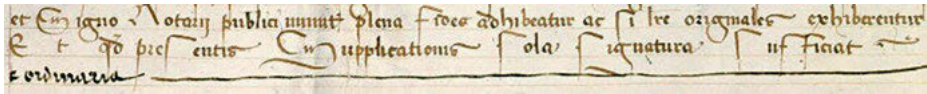 et Signo Notarii publici munit plena fides adhibeatur ac si lre originales exhiberentur
Et qd presentis supplicationis sola Signatura Sufficiat
t ordinaria